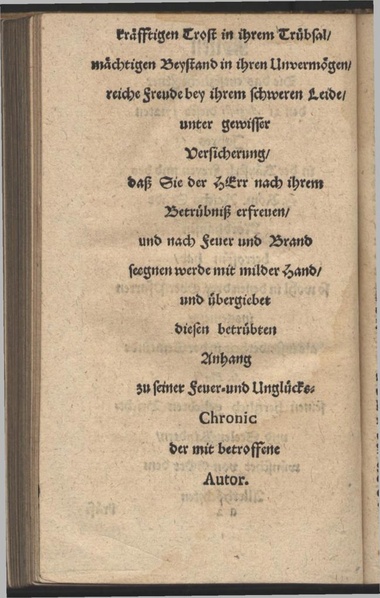 kräfftigen Trost in ihrem Trübsal/
mächtigen Beystand in ihren Unvermögen/
reiche Freude bey ihrem schweren Leide/
unter gewisser
Versicherung/
daß Sie der HErr nach ihrem
Betrübniß erfreuen/
und nach Feuer und Brand
seegnen werde mit milder Hand/
und übergiebet
diesen betrübten
Anhang
zu seiner Feuer-und Unglücks-
Chronic
der mit betroffene
Autor.